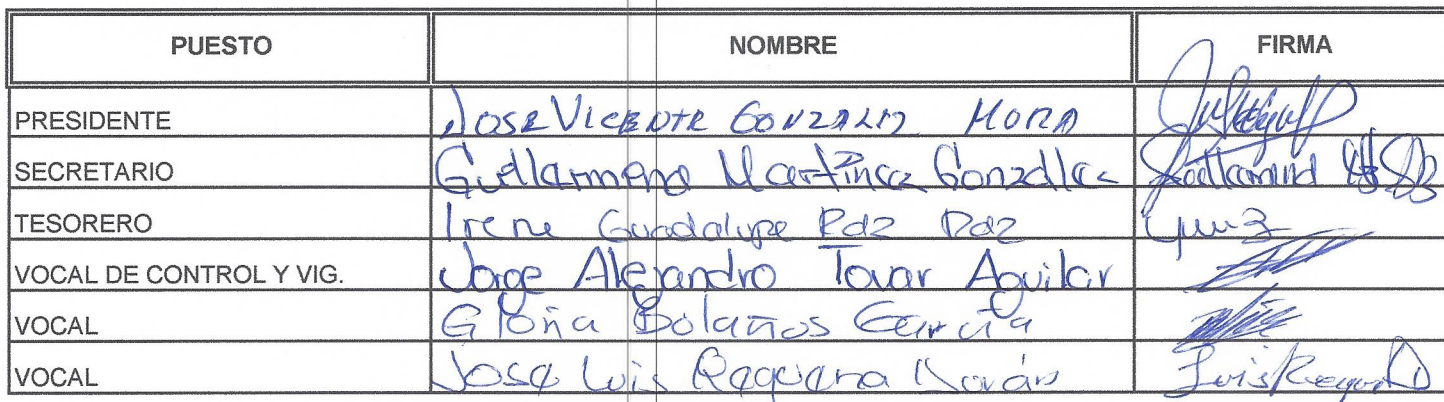 PUESTO NOMBRE FIRMA
PRESIDENTE JOSE VICENTE GONZALEZ MORA
SECRETARIO Guillermina Martinez Gonzalez
TESORERO Irene Guadalupe Rdz Rdz
VOCAL DE CONTROL Y VIG. Jorge Alejandro Tovar Aguilar
VOCAL Gloria Bolaños Garcia
VOCAL Jose Luis Requena